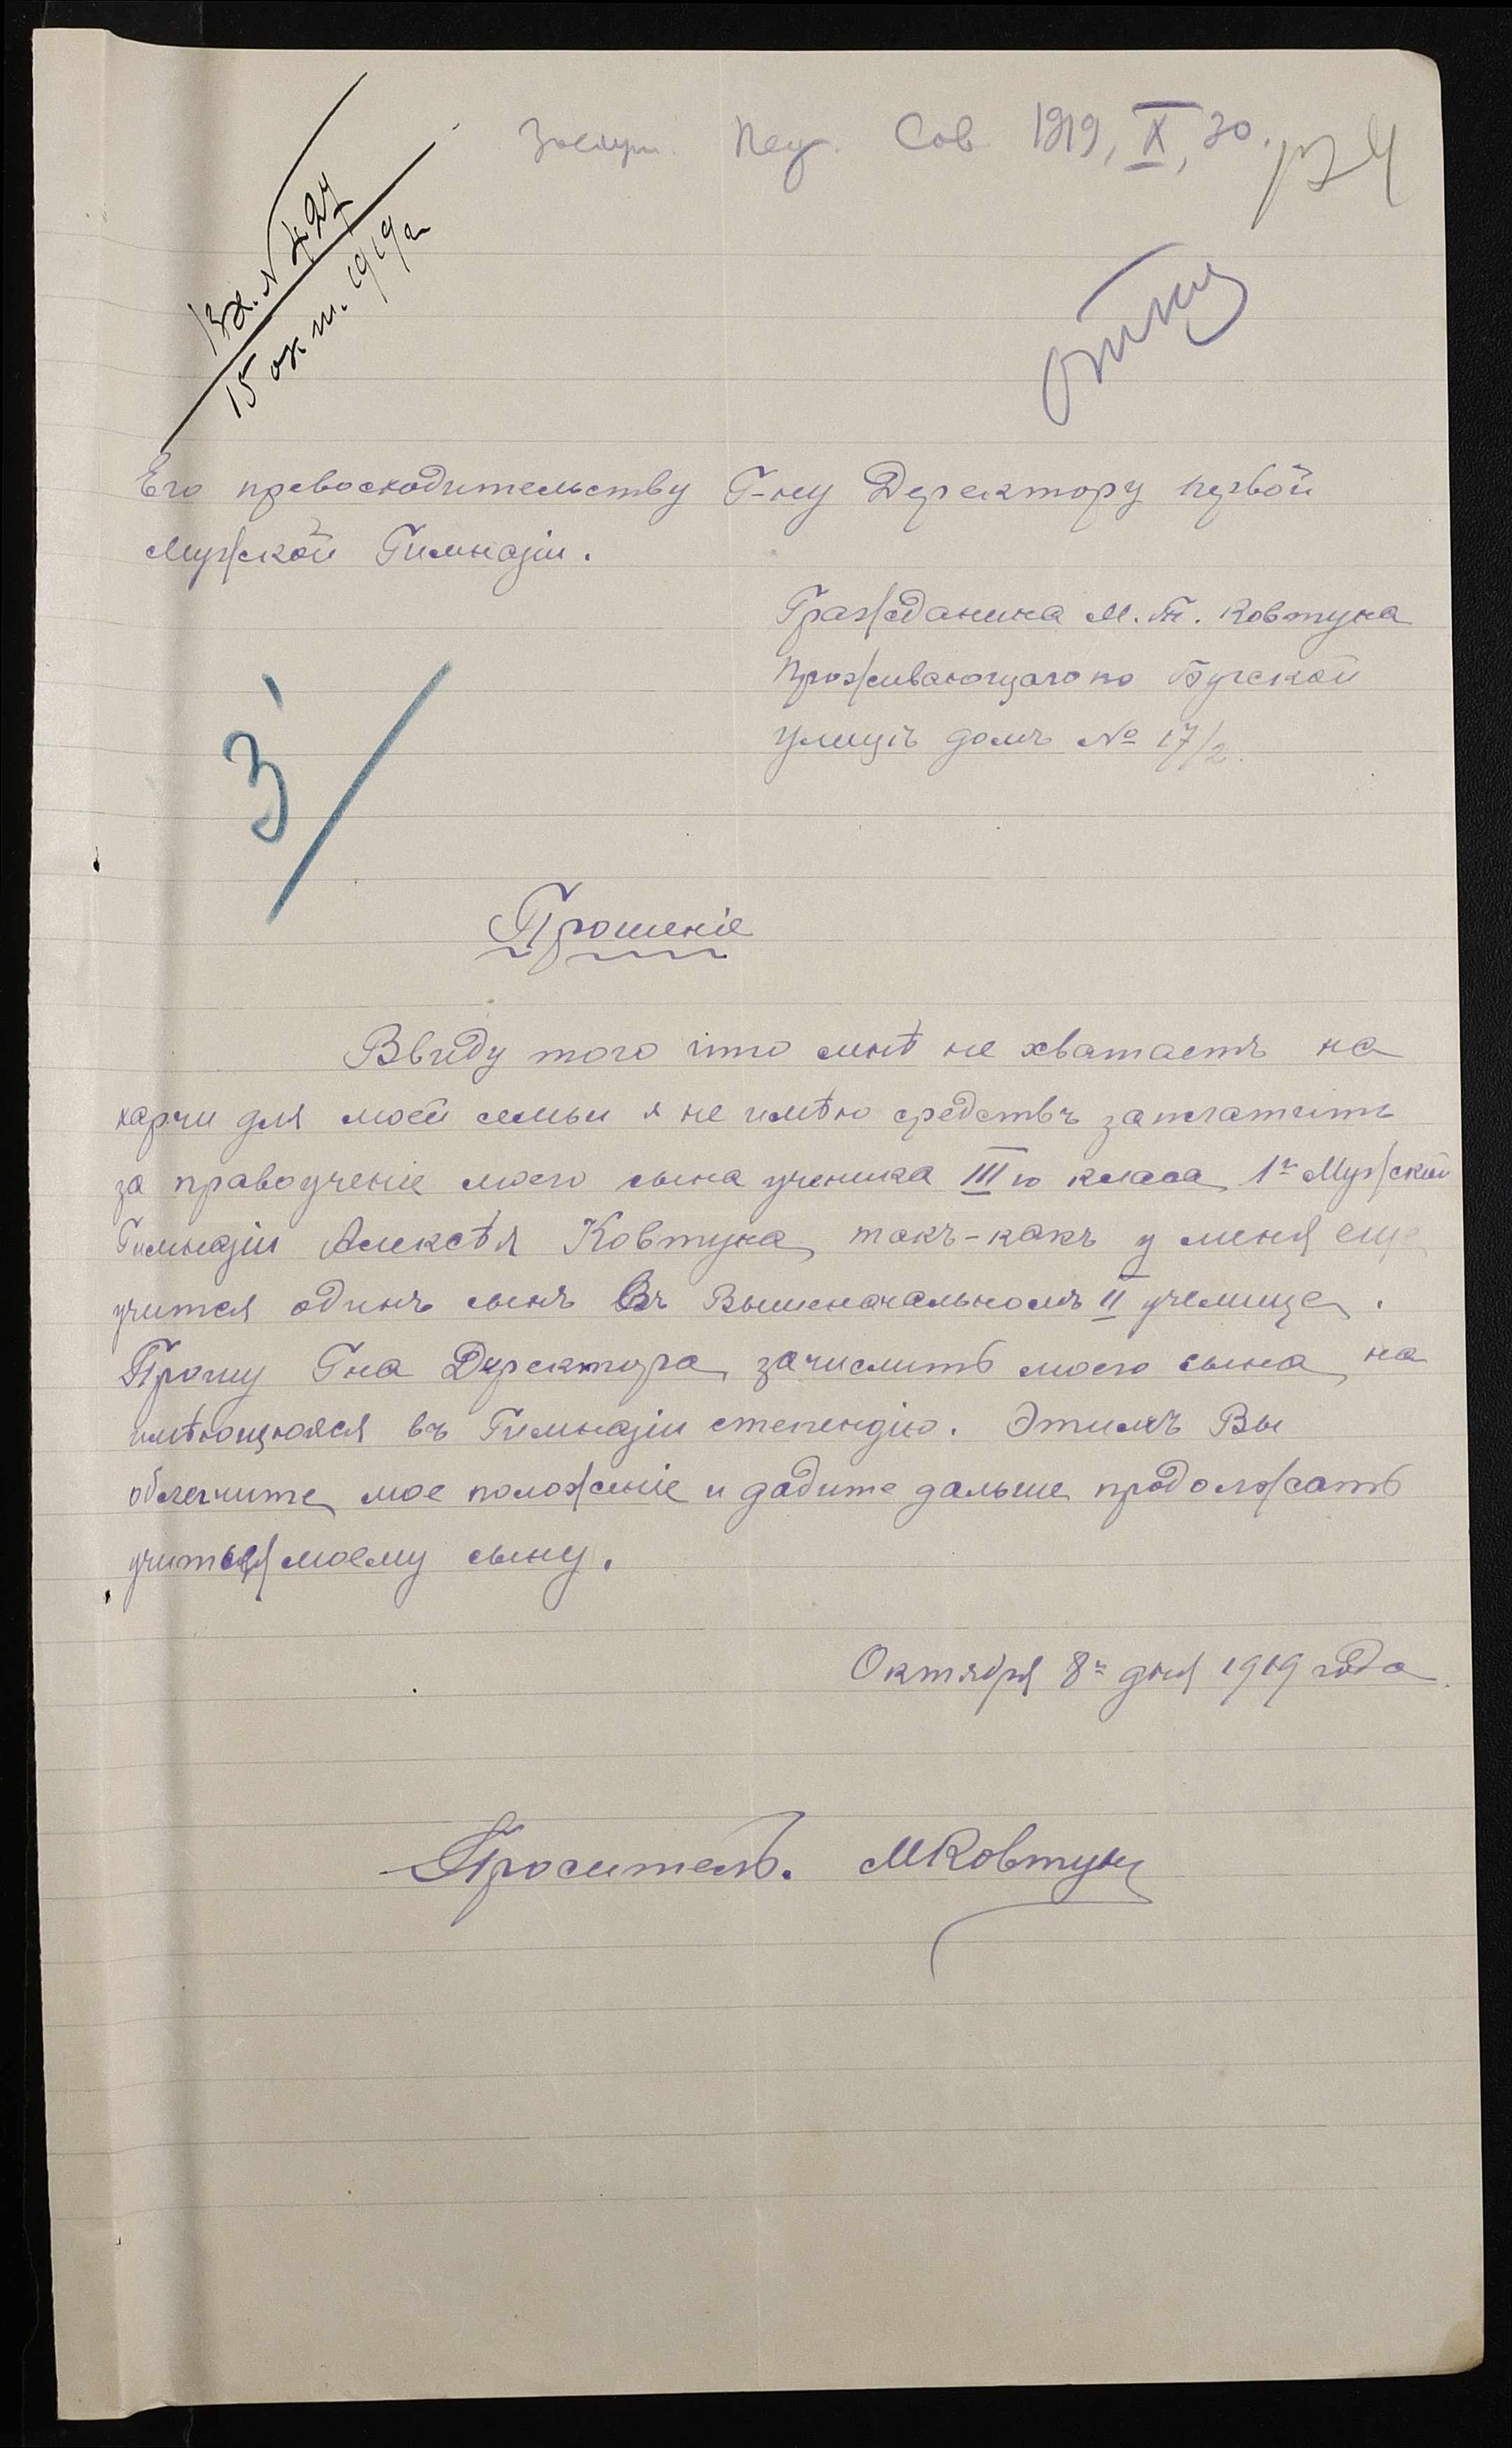 Пед. Сов. 1919, X, 30.
Вх. N 427
15 окт. 1919 г
Его превосходительству Г-ну Деректору первой
Мужской Гимназіи.
Гражданина М. Т. Ковтуна
Проживающаго по Бугской
улицѣ домъ № 17/2.
3
Прошеніе
Ввиду того что мнѣ не хватаетъ на
харчи для моей семьи я не имѣю средствъ заплатить
за правоученіе моего сына ученика III го класа 1й Мужской
Гимназіи Алексѣя Ковтуна, такъ-какъ у меня еще
учится одинъ сынъ Въ Вышеначальномъ II училище.
Прошу Гна Деректора зачислить моего сына на
имѣющюяся въ Гимназіи степендію. Этимъ Вы
облегчите мое положеніе и дадите дальше продолжать
учиться моему сыну.
Октября 8го дня 1919 года.
Проситель. МКовтун